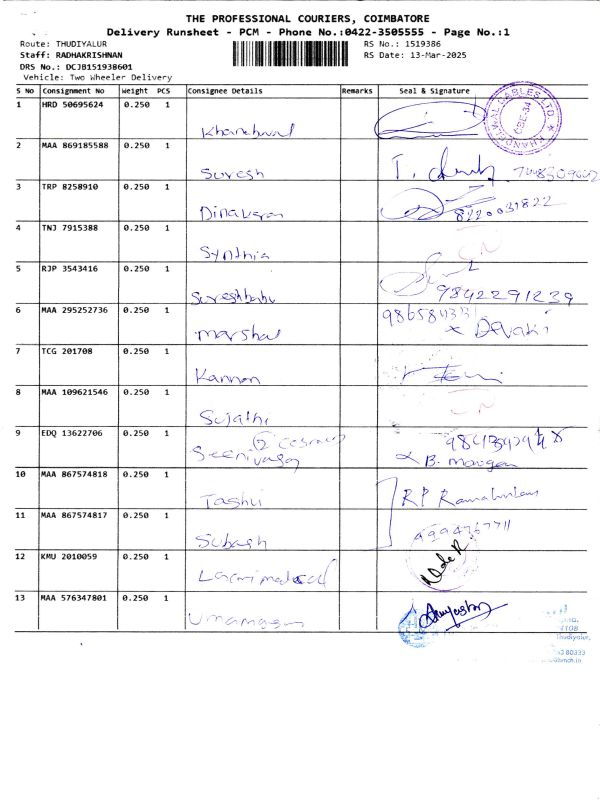 THE PROFESSIONAL COURIERS, COIMBATORE
Delivery Runsheet - PCM - Phone No.:0422-3505555 - Page No.:1
Route: THUDIYALUR RS No.: 1519386
Staff: RADHAKRISHNAN RS Date: 13-Mar-2025
DRS No.: DCJB151938601
Vehicle: Two Wheeler Delivery
S No Consignment No Weight PCS Consignee Details Remarks Seal & Signature
1 HRD 50695624 0.250 1
KHANDELWAL CABLES LTD. CBE-34
2 MAA 869185588 0.250 1
Suresh
3 TRP 8258910 0.250 1
Dinakaran 8220031822
4 TNJ 7915388 0.250 1
Synthia
5 RJP 3543416 0.250 1
Sureshbabu 9842291239
6 MAA 295252736 0.250 1
Marshal x Devaki
7 TCG 201708 0.250 1
Kannan
8 MAA 109621546 0.250 1
Sujatha
9 EDQ 13622706 0.250 1
Seenivasan
B. Murugan
10 MAA 867574818 0.250 1
RP
11 MAA 867574817 0.250 1
Subash 9994767711
12 KMU 2010059 0.250 1
Laxmi medical
13 MAA 576347801 0.250 1
Thudiyalur,